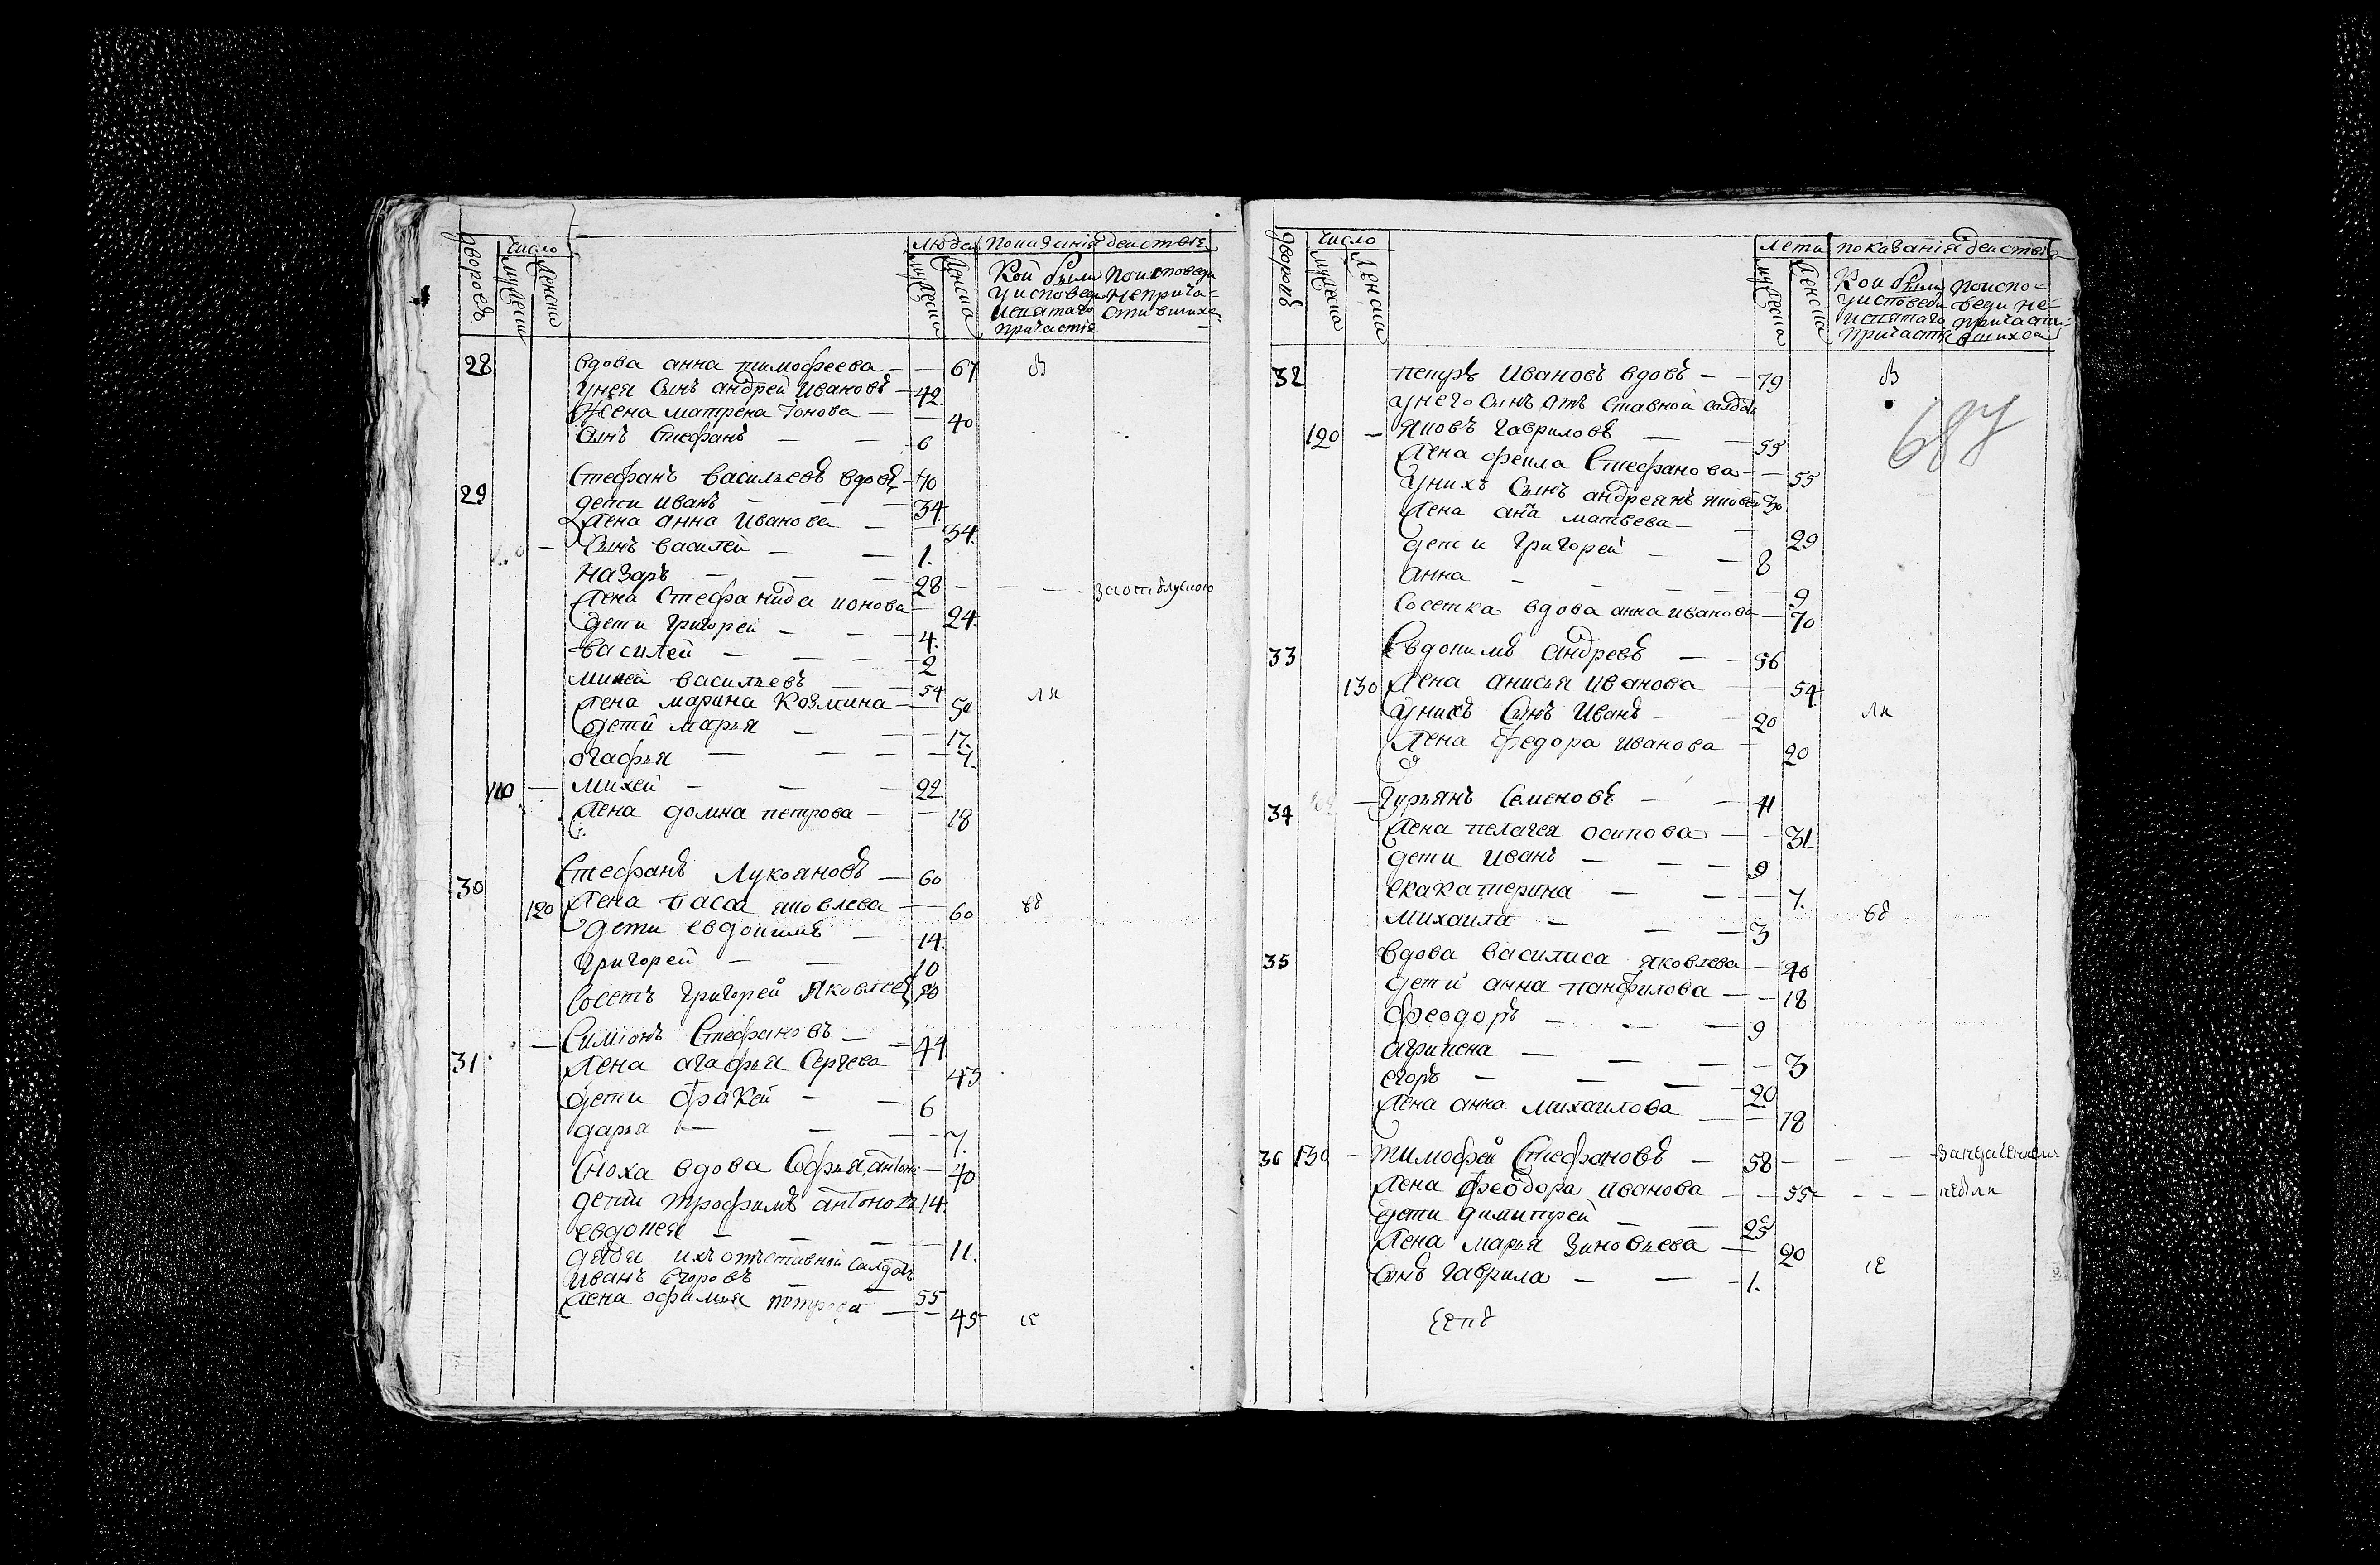 дворовъ число людей показанїе действа
мужеска женска мужеска женска
Кои были поисповеди
у исповеди неприча=
исвятаго стившихся
причастїя
28 вдова анна тимофеева — — 67 В
унея Сынъ андрей Ивановъ — 42
жена матрена Іонова — — 40
Сынъ Стефанъ — — 6
29 Стефанъ васильевъ вдовъ — 70
дети иванъ — — 34
жена анна Иванова — — 34
Сынъ василей — — 1.
назаръ — — — 28 — — —
жена Стефанида ионова — 24
дети григорей — — — 4.
василей — — — 2
михей васильевъ — 54 ли
жена марина Козмина — 50
дети марья — — — 17.
огафья — — — — 7.
110 — михей — — 22
жена домна петрова — — 18
30 Стефанъ Лукояновъ — 60
120 жена васса яковлева — — 60
дети евдокимъ — — 14.
григорей — — 10
Сосетъ григорей яковлевъ
31 — Симїонъ Стефановъ — — 44
жена агафья Сергеева — 43
дети фокей — — 6
дарья — — — — 7.
Сноха вдова Софья антоно — 40
дети трофимъ антоновъ 14.
евдокея — — — — 11.
дядя ихъ отъставной Салдатъ
Иванъ Егоровъ — — 55
жена офимья петрова — — 45
дворовъ число лета показанїя действа
мужеска женска мужеска женска
Кои были поиспо=
у исповеди веди не=
исвятаго причасти=
причастїя вшихся
32 петръ Ивановъ вдовъ — — 79 В
унего Сынъ отъ ставной салдатъ
687
120 — яковъ гавриловъ — — 59
жена фекла Стефанова — — 55
унихъ Сынъ андреянъ яковлевъ 30
жена анна матвеева — — 29
дети григорей — — 8
анна — — — — 9
Сосетка вдова анна иванова — 70
33 Евдокимъ андреевъ — — 56
130 жена анисья иванова — 54
унихъ Сынъ Иванъ — — 20 ли
жена федора иванова — 20
34 — гурьянъ Семеновъ — — 41
жена пелагея осипова — — 31
дети иванъ — — — 9
екакатерина — — — 7.
михаила — — — 3
35 вдова василиса яковлева — 40
дети анна панфилова — — 18
феодоръ — — — 9
агрипена — — — — 3
егоръ — — — — 20
жена анна михаилова — — 18
36 130 — тимофей Стефановъ — 58 — — —
жена феодора иванова — — 55 — — —
дети димитрей — — 25
жена марья зиновьева — 20
Сынъ гаврила — — — 1.